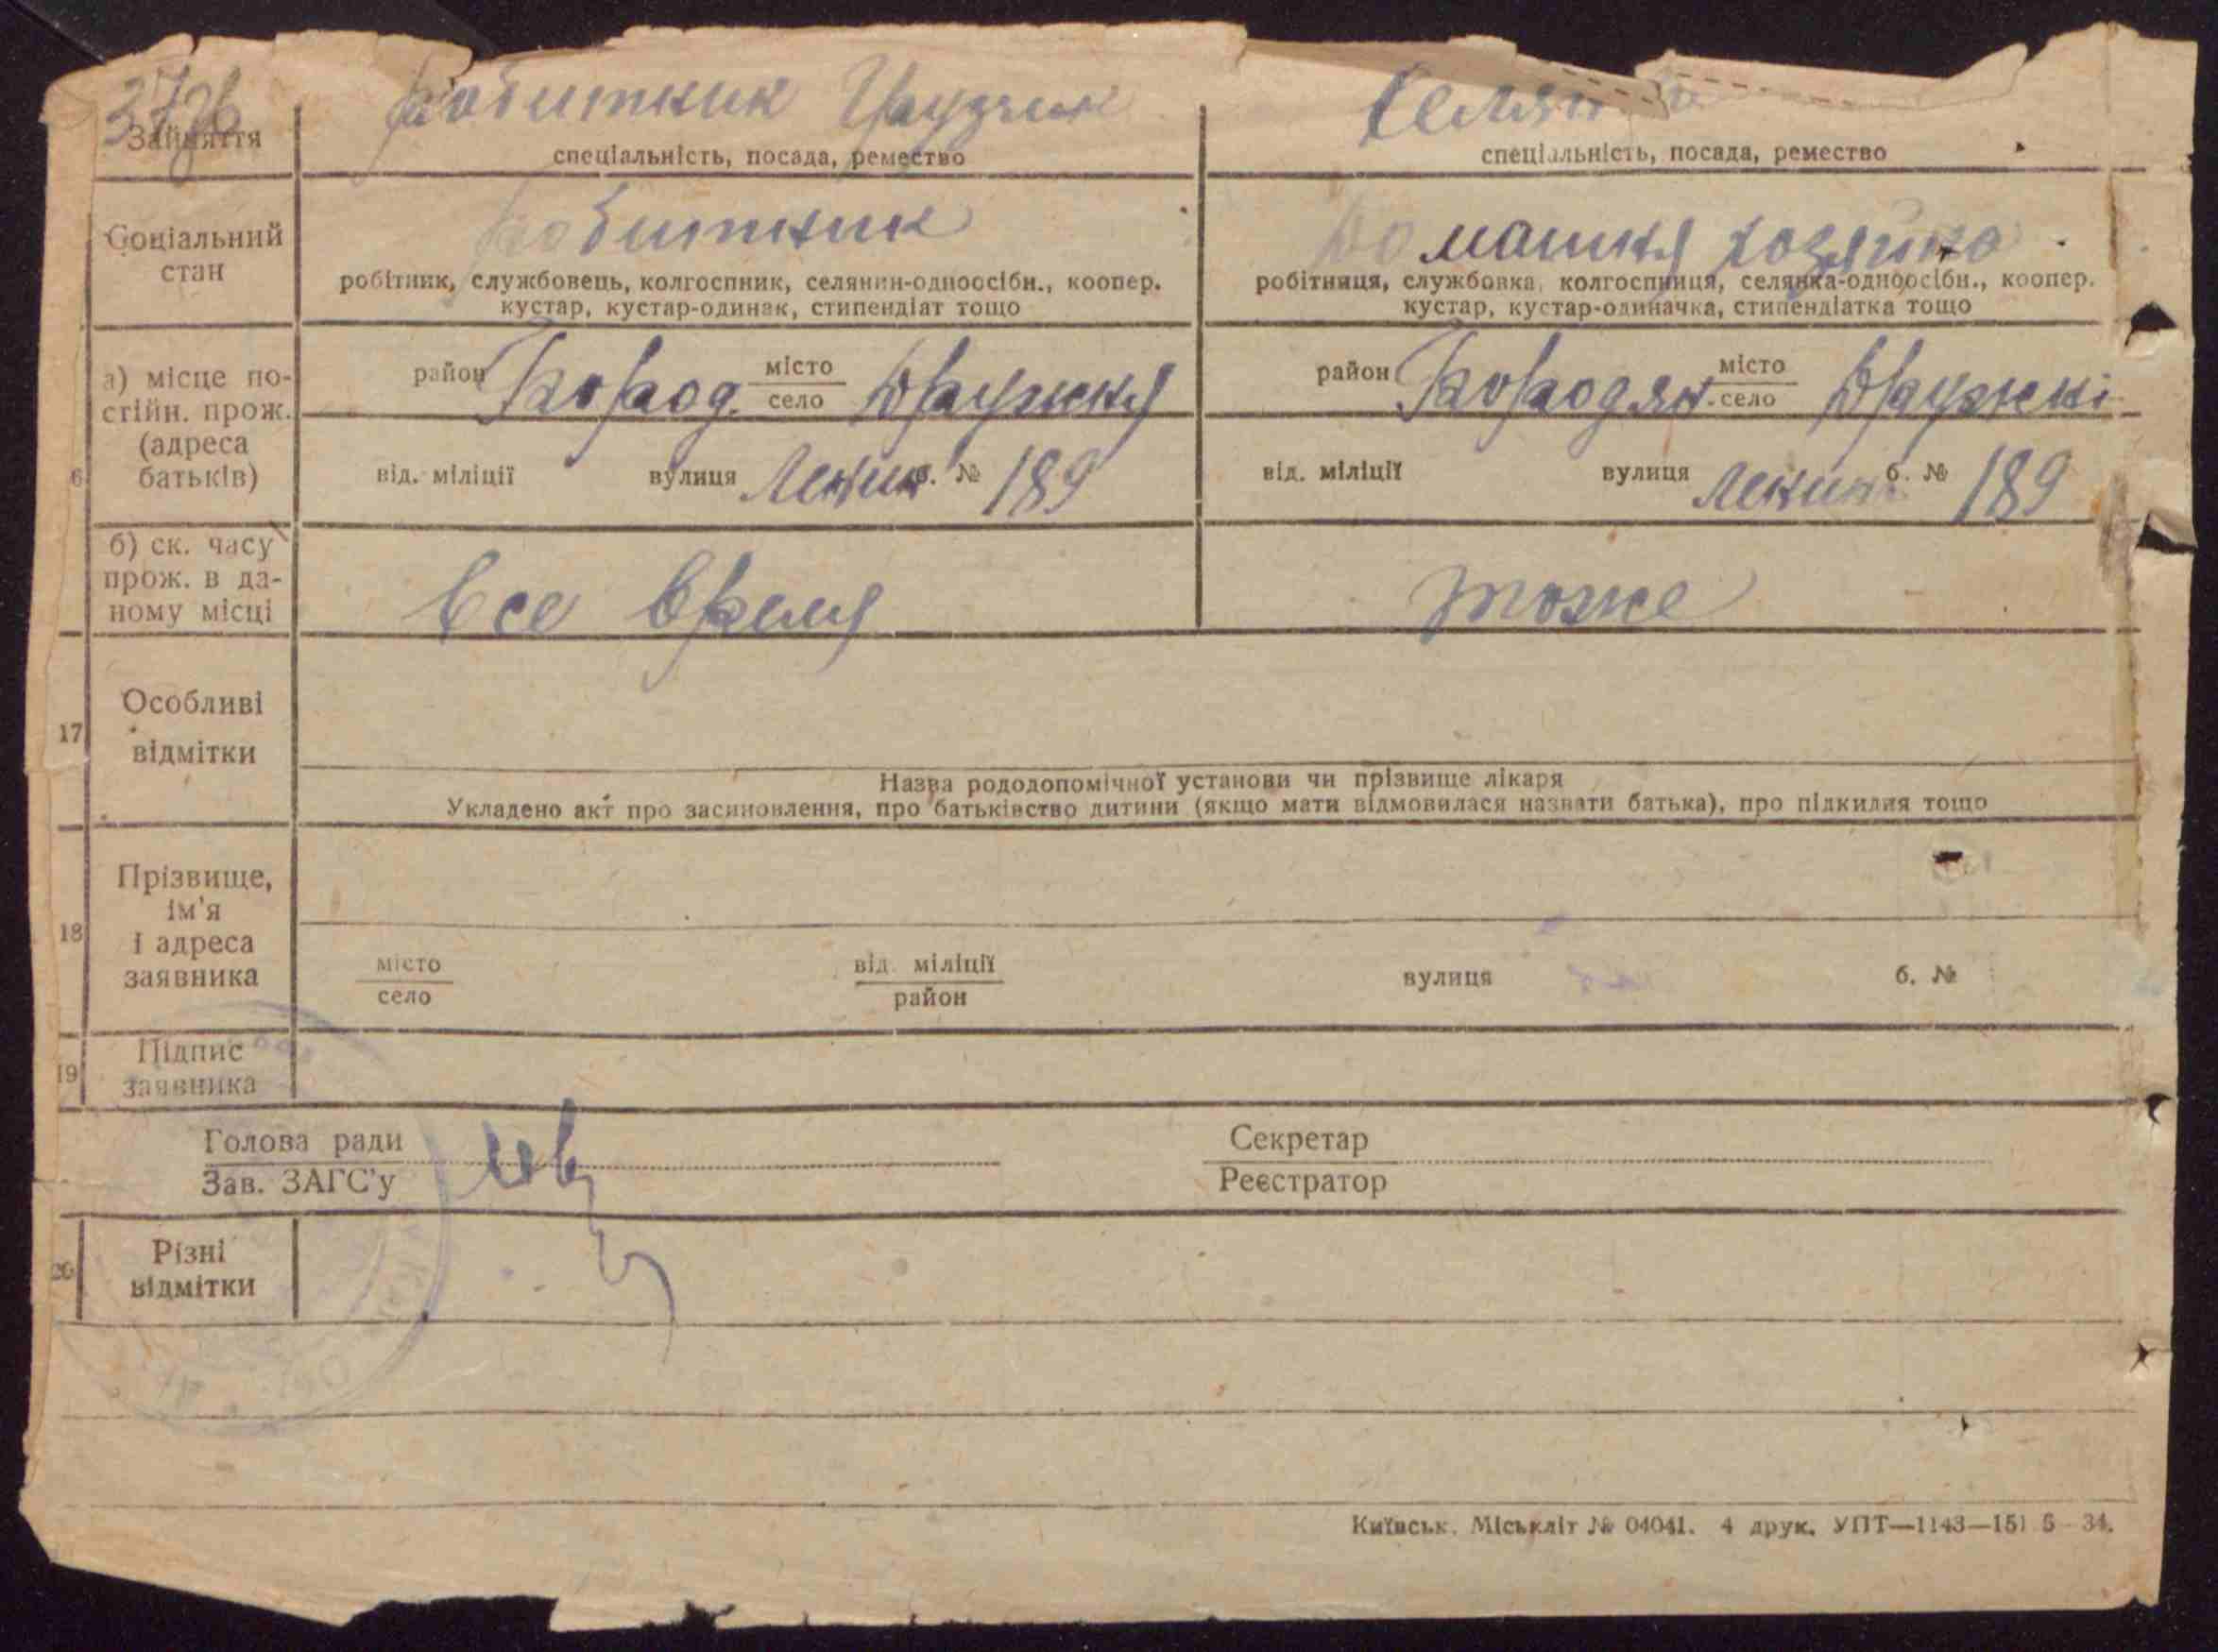 Зайняття
робитник Грузчик
селян
спеціальність, посада, ремество
спеціальність, посада, ремество
Соціальний
стан
робитник
домашня хозяйка
робітник, службовець, колгоспник, селянин-одноосібн., коопер.
кустар, кустар-одинак, стипендіат тощо
робітниця, службовка, колгоспниця, селянка-одноосібн., коопер.
кустар, кустар-одиначка, стипендіатка тощо
6
а) місце по-
стійн. прож.
(адреса
батьків)
район Бород. місто село Дружня
район Бородян. місто село Дружні
від. міліції вулиця Ленин б. № 189
від. міліції вулиця Ленин б. № 189
б) ск. часу
прож. в да-
ному місці
все время
тоже
17
Особливі
відмітки
Назва рододопомічної установи чи прізвище лікаря
Укладено акт про засиновлення, про батьківство дитини (якщо мати відмовилася назвати батька), про підкидня тощо
18
Прізвище,
ім'я
і адреса
заявника
місто
село
від. міліції
район
вулиця
б. №
19
Підпис
заявника
Голова ради
Зав. ЗАГС'у
Секретар
Реєстратор
20
Різні
відмітки
Київськ. Міськліт № 04041. 4 друк. УПТ—1143—151 5-34.